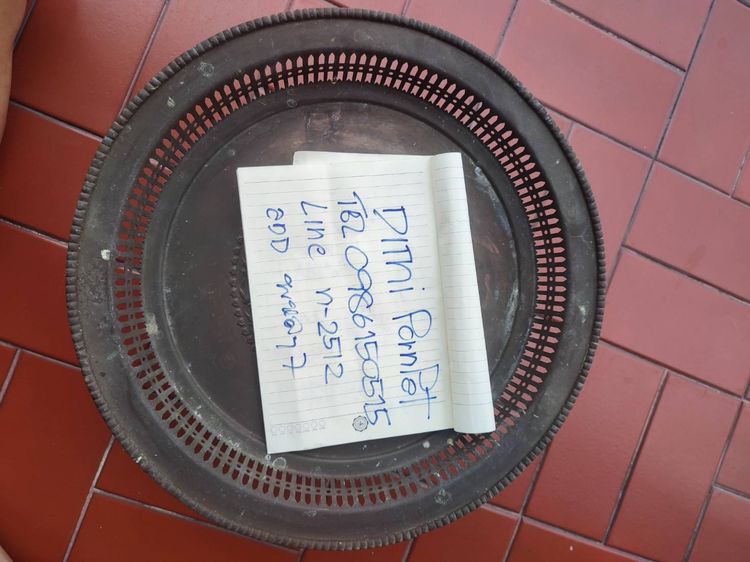 DIThi PornPet
TEL 0986150515
Line n-2512